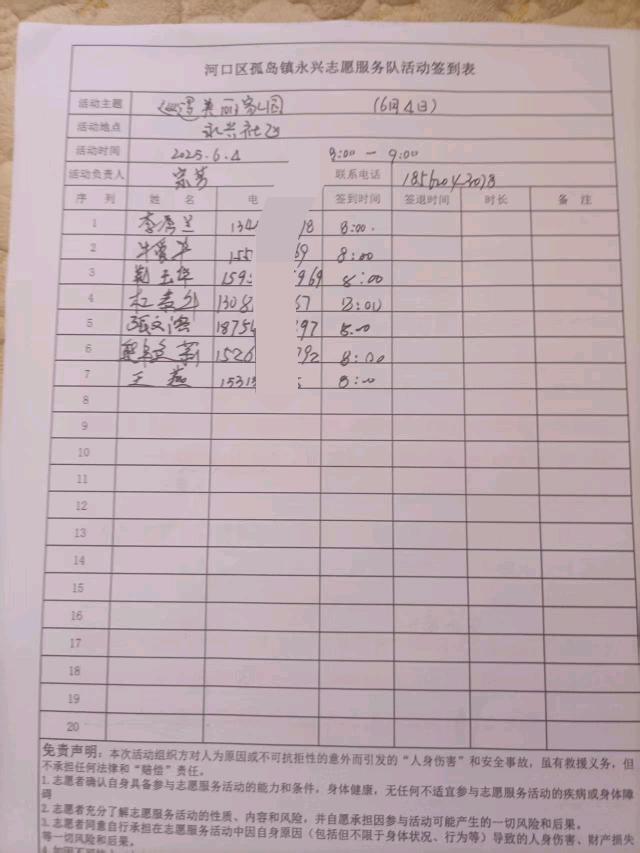 河口区孤岛镇永兴志愿服务队活动签到表
活动主题 美丽家园 (6月4日)
活动地点 永兴社区
活动时间 2025.6.4 8:00 — 9:00
活动负责人 宗芳 联系电话
序 列 姓 名 电 签到时间 签退时间 时长 备 注
1 李秀兰 134 18 8:00
2 牛爱华 155 69 8:00
3 玉华 159 969 8:00
4 杜 1308 57 8:00
5 张文 18754 97 8:00
6 1526 292 8:00
7 王燕 1531 8:00
8
9
10
11
12
13
14
15
16
17
18
19
20
免责声明：本次活动组织方对人为原因或不可抗拒性的意外而引发的“人身伤害”和安全事故，虽有救援义务，但
不承担任何法律和“赔偿”责任。
1.志愿者确认自身具备参与志愿服务活动的能力和条件，身体健康，无任何不适宜参与志愿服务活动的疾病或身体障
碍
2.志愿者充分了解志愿服务活动的性质、内容和风险，并自愿承担因参与活动可能产生的一切风险和后果。
3.志愿者同意自行承担在志愿服务活动中因自身原因（包括但不限于身体状况、行为等）导致的人身伤害、财产损失
等一切风险和后果。